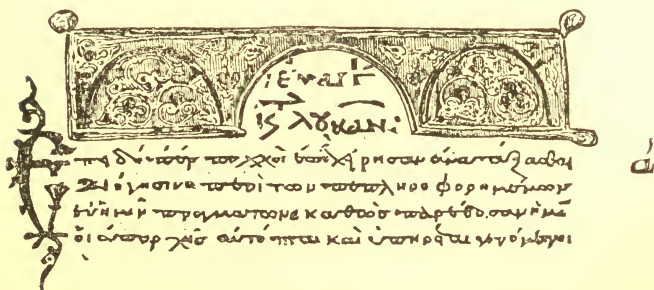 εὐαγγ
λουκᾶν:
Ἐπειδήπερ πολλοὶ ἐπεχείρησαν ἀνατάξασθαι
διήγησιν περὶ τῶν πεπληροφορημένων
ἐν ἡμῖν πραγμάτων· καθὼς παρέδοσαν ἡμῖ
οἱ ἀπαρχῆς αὐτόπται καὶ ὑπηρέται γενόμενοι